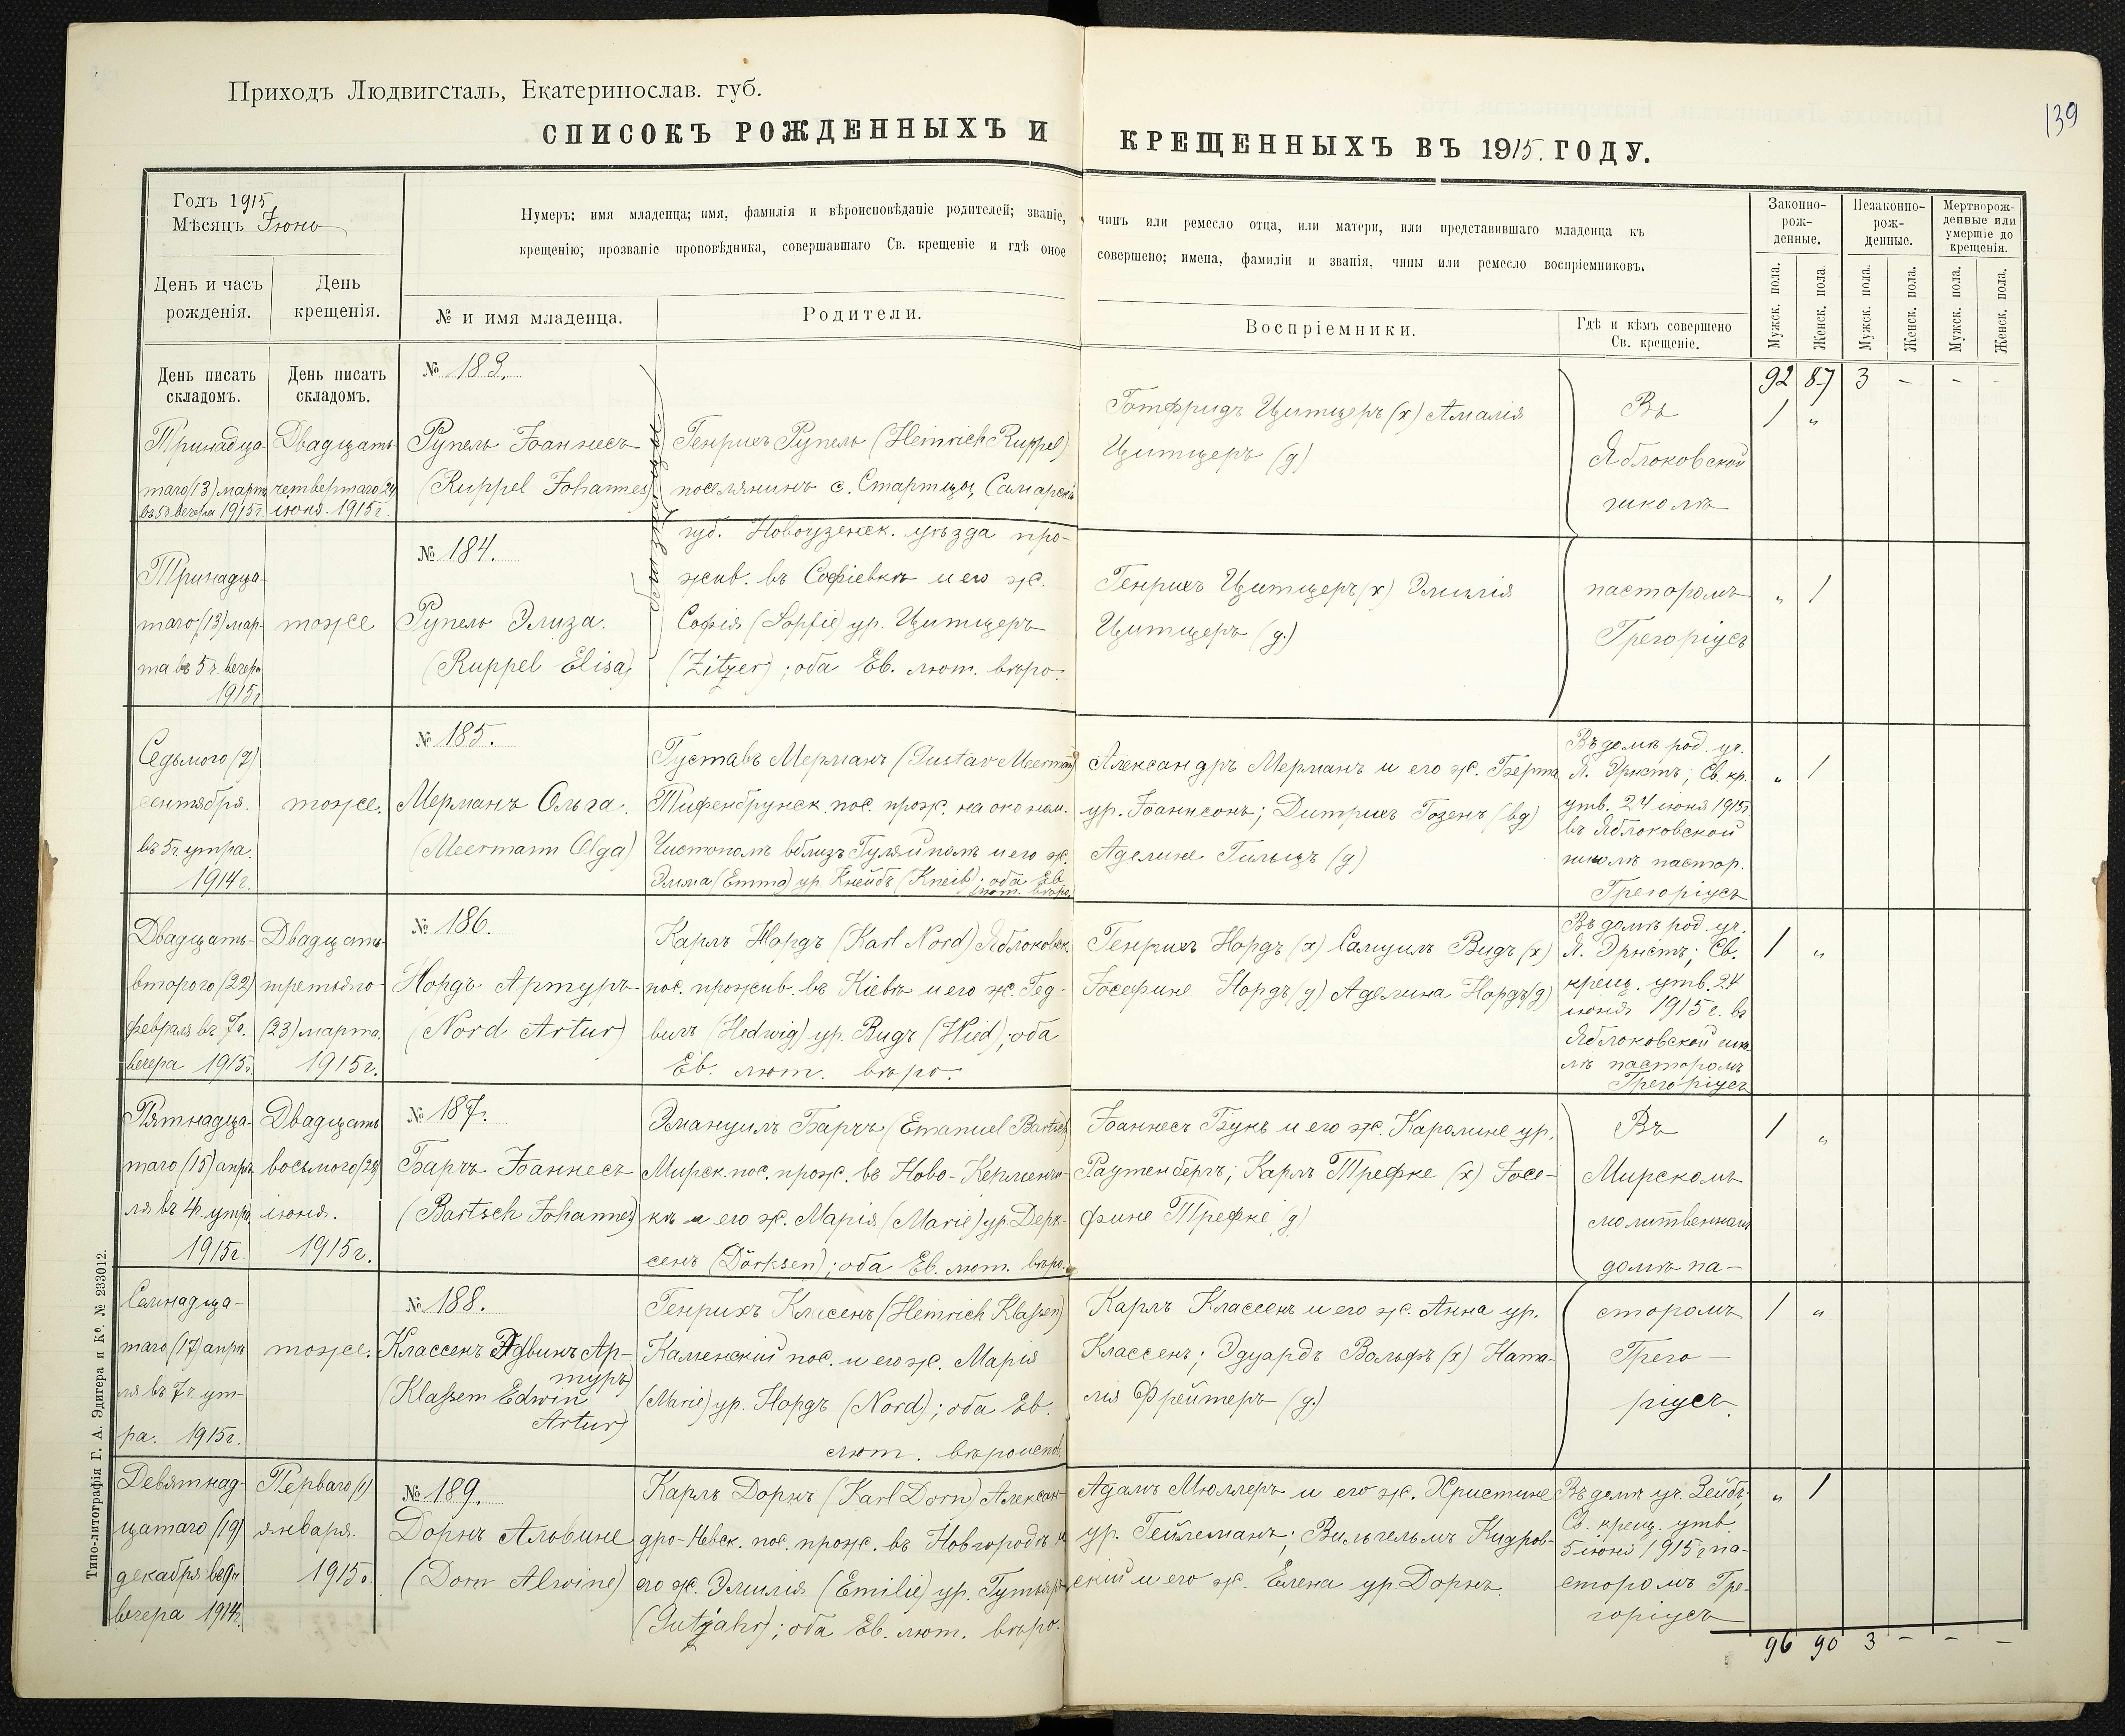 Приходъ Людвигсталь, Екатеринослав. губ.
139
СПИСОКЪ РОЖДЕННЫХЪ И КРЕЩЕННЫХЪ ВЪ 1915. ГОДУ.
Годъ 1915
Мѣсяцъ Іюнь
Нумеръ; имя младенца; имя, фамилія и вѣроисповѣданіе родителей; званіе, чинъ или ремесло отца, или матери, или представившаго младенца къ
крещенію; прозваніе проповѣдника, совершавшаго Св. крещеніе и гдѣ оное совершено; имена, фамиліи и званія, чины или ремесло воспріемниковъ.
Законно-
рож-
денные.
Незаконно-
рож-
денные.
Мертворож-
денные или
умершіе до
крещенія.
День и часъ
рожденія.
День
крещенія.
№ и имя младенца.
Родители.
Воспріемники.
Гдѣ и кѣмъ совершено
Св. крещеніе.
Мужск. пола.
Женск. пола.
Мужск. пола.
Женск. пола.
Мужск. пола.
Женск. пола.
День писать
складомъ.
День писать
складомъ.
92 87 3 - - -
Тринадца-
таго (13) марта
въ 5 ч. вечера 1915 г.
Двадцать
четвертаго 24
іюня. 1915 г.
№ 183.
Рупель Іоаннесъ
(Ruppel Johannes)
Генрихъ Рупель (Heinrich Ruppel)
поселянинъ с. Стартцы, Самарск.
губ. Новоузенск. уѣзда про-
жив. въ Софіевкѣ и его ж.
Софія (Sopfie) ур. Цитцеръ
(Zitzer); оба Ев. лют. вѣро.
Готфридъ Цитцеръ (х) Амалія
Цитцеръ (д)
Въ
Яблоковской
школѣ
1 "
Тринадца-
таго (13) мар-
та въ 5 ч. вечера
1915 г
тоже
№ 184.
Рупель Элиза.
(Ruppel Elisa)
Генрихъ Цитцеръ (х) Эмилія
Цитцеръ (д.)
пасторомъ
Грегоріусъ
" 1
Седьмого (7)
сентября.
въ 5 ч. утра.
1914 г.
тоже.
№ 185.
Мерманъ Ольга.
(Meermann Olga)
Густавъ Мерманъ (Gustav Meermann)
Тифенбрунск. пос. прож. на эконом.
Чистополѣ вблизъ Гуляйполѣ и его ж.
Эмма (Emma) ур. Кнейбъ (Kneib); оба Ев.
лют. вѣро.
Александръ Мерманъ и его ж. Берта
ур. Іоаннсонъ; Дитрихъ Гозенъ (вд)
Аделине Гильцъ (д)
Въ домѣ род. уч.
Я. Эрнстъ; Св. кр.
утв. 24 іюня 1915 г.
въ Яблоковской
школѣ пастор.
Грегоріусъ
" 1
Двадцать-
второго (22)
февраля въ 7 ч.
вечера 1915 г.
Двадцать-
третьяго
(23) марта.
1915 г.
№ 186.
Нордъ Артуръ
(Nord Artur)
Карлъ Нордъ (Karl Nord) Яблоковск.
пос. прожив. въ Кіевѣ и его ж. Гед-
вигъ (Hedwig) ур. Видъ (Wied); оба
Ев. лют. вѣро.
Генрихъ Нордъ (х) Самуилъ Видъ (х)
Іосефине Нордъ (д) Аделина Нордъ (д)
Въ домѣ род. уч.
Я. Эрнстъ; Св.
крещ. утв. 24
іюня 1915 г. въ
Яблоковской шко-
лѣ пасторомъ
Грегоріусъ
1 "
Пятнадца-
таго (15) апрѣ-
ля въ 4 ч. утра
1915 г.
Двадцать
восьмого (28)
іюня.
1915 г.
№ 187.
Барчъ Іоаннесъ
(Bartsch Johannes)
Эмануилъ Барчъ (Emanuel Bartsch)
Мирск. пос. прож. въ Ново-Керменчи-
кѣ и его ж. Марія (Marie) ур. Дерк-
сенъ (Dörksen); оба Ев. лют. вѣро.
Іоаннесъ Букъ и его ж. Каролине ур.
Раутенбергъ; Карлъ Трефке (х) Іосе-
фине Трефке (д)
Въ
Мирскомъ
молитвенномъ
домѣ па-
1 "
Семнадца-
таго (17) апрѣ-
ля въ 7 ч. ут-
ра. 1915 г.
тоже.
№ 188.
Классенъ Эдвинъ Ар-
туръ
(Klassem Edwin
Artur)
Генрихъ Классенъ (Heinrich Klassen)
Каменскій пос. и его ж. Марія
(Marie) ур. Нордъ (Nord); оба Ев.
лют. вѣроиспов.
Карлъ Классенъ и его ж. Анна ур.
Классенъ; Эдуардъ Вольфъ (х) Ната-
лія Фрейтеръ (д.)
сторомъ
Грего-
ріусъ.
1 "
Девятнад-
цатаго (19)
декабря въ
вечера 1914 г.
Перваго (1)
января.
1915 г.
№ 189.
Дорнъ Альвине
(Dorn Alwine)
Карлъ Дорнъ (Karl Dorn) Алексан-
дро-Невск. пос. прож. въ Новгородѣ и
его ж. Эмилія (Emilie) ур. Гутьяръ
(Gutjahr); оба Ев. лют. вѣро.
Адамъ Мюллеръ и его ж. Христине
ур. Гейлеманъ; Вильгельмъ Кидров-
скій и его ж. Елена ур. Дорнъ.
Въ домѣ уч. Зейбъ;
Св. крещ. утв.
5 іюня 1915 г. па-
сторомъ Гре-
горіусъ
" 1
96 90 3 - - -
Типо-литографія Г. А. Эдигера и Ко. № 233012.